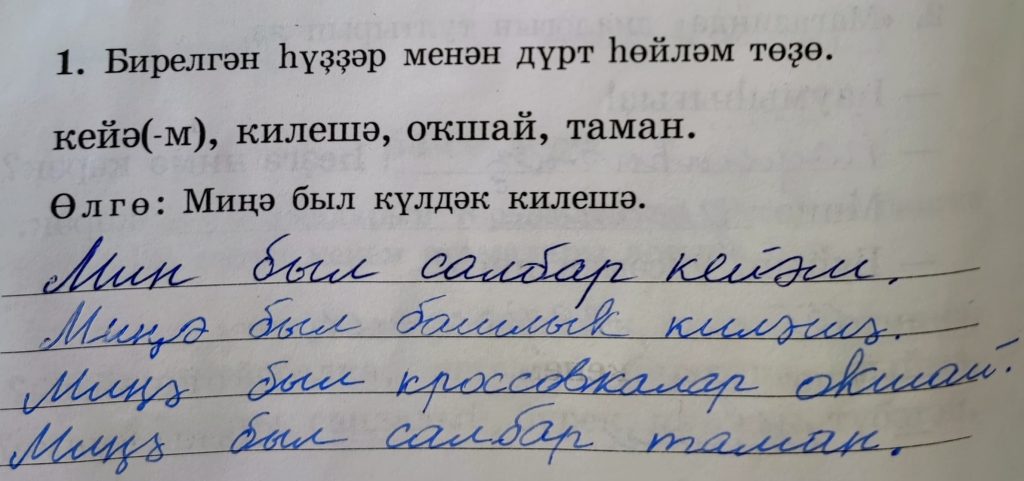 1. Бирелгән һүҙҙәр менән дүрт һөйләм төҙө.
кейә(-м), килешә, оҡшай, таман.
Өлгө: Миңә был күлдәк килешә.
Мин был салбар кейәм.
Миңә был башлык киләшә.
Миңә был кроссовкалар окшай.
Миңә был салбар таман.